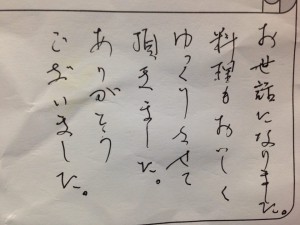 お世話になりました。
料理もおいしく
ゆっくりさせて
頂きました。
ありがとう
ございました。